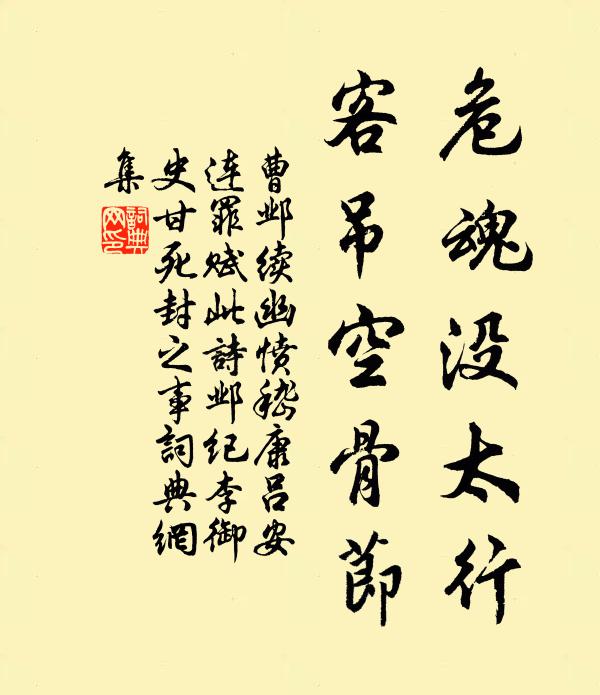 危魂没太行
客吊空骨節
曹邺续幽愤嵇康吕安
连罪赋此詩邺纪李御
史甘死封之事詞典網
集
詞典网印